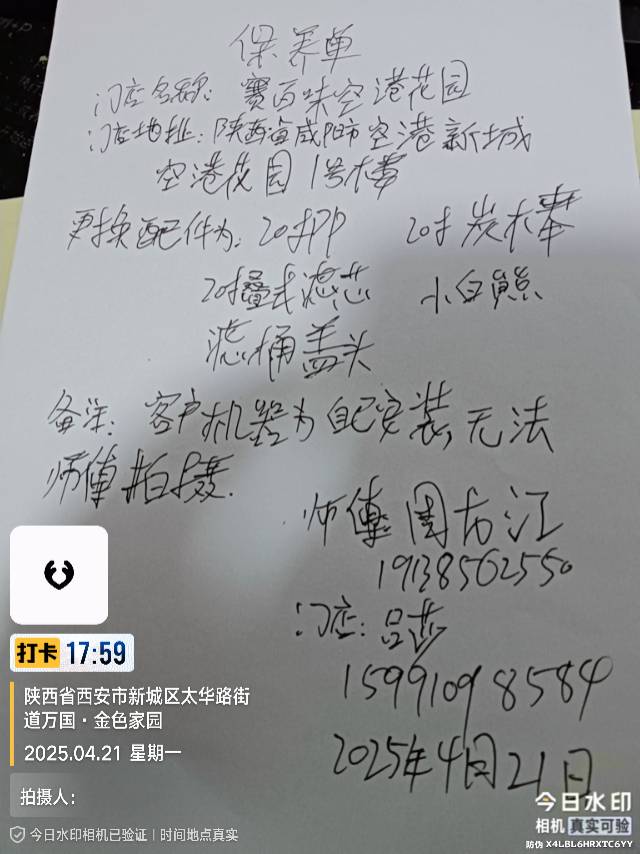 保养单
门店名称：赛百味空港花园
门店地址：陕西省咸阳市空港新城
空港花园1号楼
更换配件为：20寸PP 20寸炭棒
20寸叠式滤芯 小白熊
滤桶盖头
备注：客户机器为自己安装，无法
师傅拍摄.
师傅 周方江
19138562550
门店：吕莎
15991098584
2025年4月21日
打卡 17:59
陕西省西安市新城区太华路街
道万国·金色家园
2025.04.21 星期一
拍摄人：
今日水印相机已验证｜时间地点真实
今日水印
相机 真实可验
防伪 X4LBL6HRXTC6YY